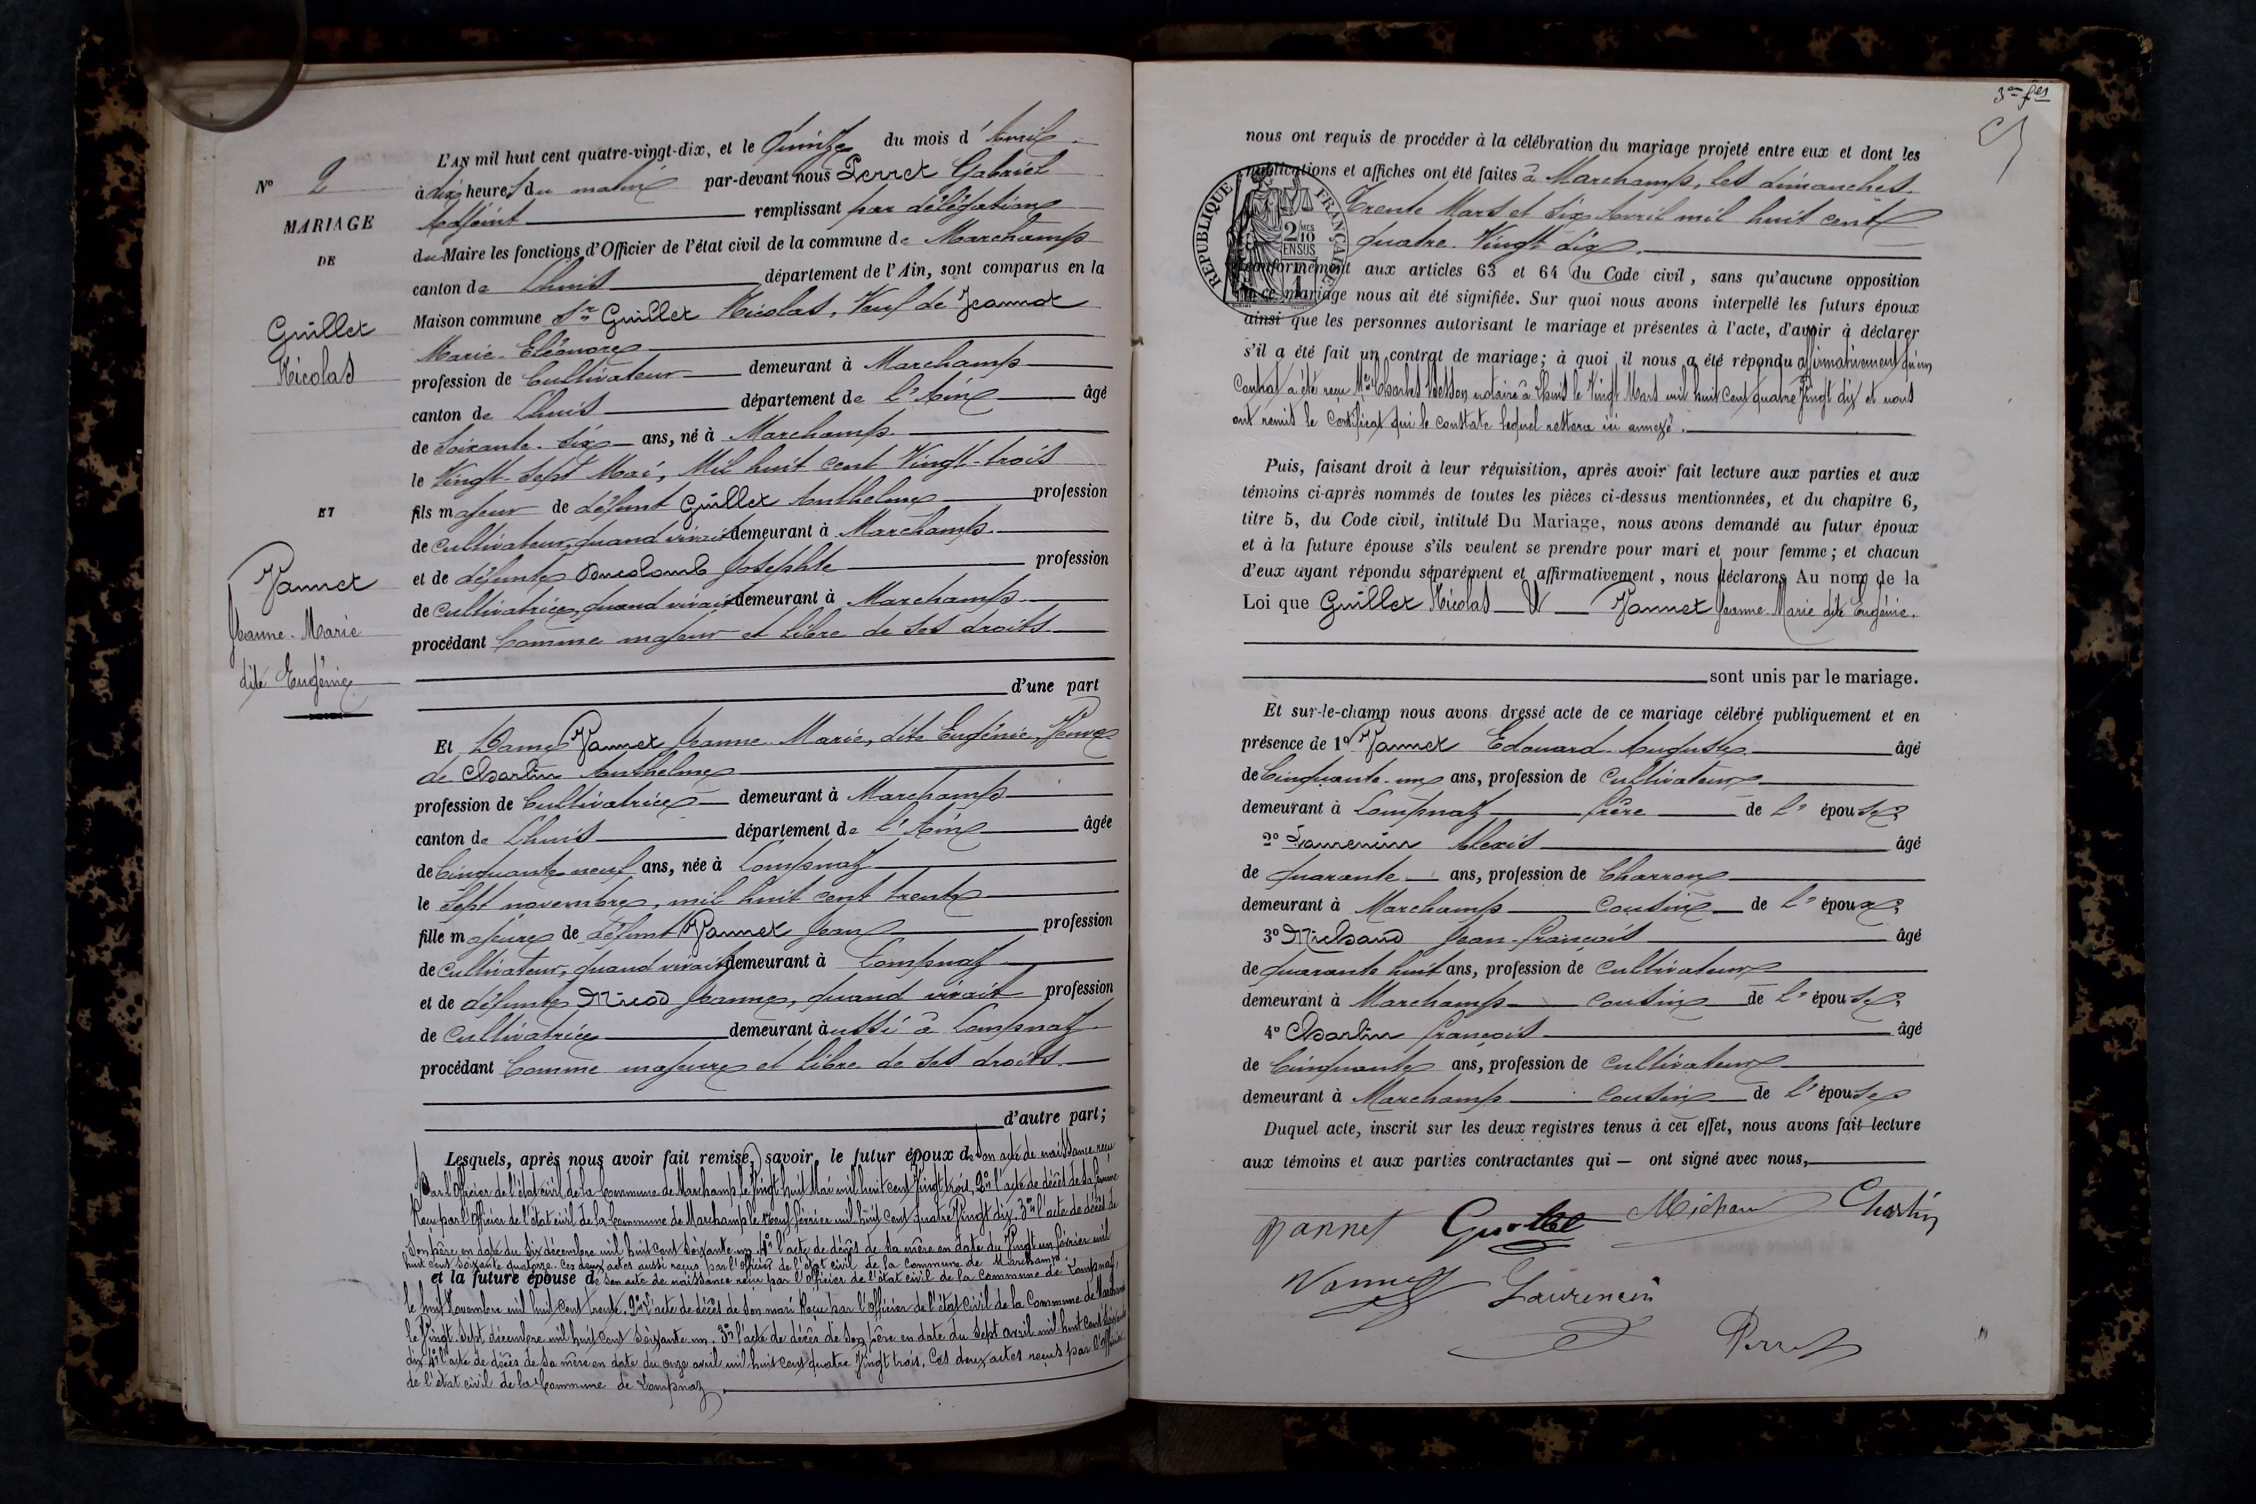 N° 2
MARIAGE
DE
Guillet
Nicolas
ET
Vannet
Jeanne-Marie
dite Eugénie
L'AN mil huit cent quatre-vingt-dix, et le Quinze du mois d'Avril
à dix heures du matin par-devant nous Perret Gabriel
Adjoint remplissant par délégation
du Maire les fonctions d'Officier de l'état civil de la commune de Marchamp
canton de Lhuis département de l'Ain, sont comparus en la
Maison commune Sr Guillet Nicolas, Veuf de Jeannot
Marie-Eléonore
profession de Cultivateur demeurant à Marchamp
canton de Lhuis département de l'Ain âgé
de Soixante-Six ans, né à Marchamp
le Vingt-Sept Mai, Mil huit cent Vingt-trois
fils majeur de défunt Guillet Anthelme profession
de cultivateur, quand vivait demeurant à Marchamp
et de défunte Josephte profession
de cultivatrice, quand vivait demeurant à Marchamp
procédant Comme majeur et libre de ses droits
d'une part
Et Dame Vannet Jeanne-Marie, dite Eugénie, Veuve
de Charlin Anthelme
profession de Cultivatrice demeurant à Marchamp
canton de Lhuis département de l'Ain âgée
de Cinquante neuf ans, née à Lompnaz
le Sept novembre, mil huit cent trente
fille majeure de défunt Vannet Jean profession
de cultivateur, quand vivait demeurant à Lompnaz
et de défunte Nicod Jeanne, quand vivait profession
de cultivatrice demeurant aussi à Lompnaz
procédant Comme majeure et libre de ses droits
d'autre part;
Lesquels, après nous avoir fait remise, savoir, le futur époux de Son acte de naissance reçu
Par l'Officier de l'état civil de la Commune de Marchamp le Vingt huit Mai mil huit cent Vingt trois, 2ent l'acte de décès de sa femme
Reçu par l'Officier de l'état civil de la Commune de Marchamp le neuf février mil huit cent quatre Vingt dix, 3ent l'acte de décès de
Son père en date du Six décembre mil huit cent Soixante un 4ent l'acte de décès de sa mère en date du Vingt un février mil
huit cent soixante quatorze. Ces deux actes aussi reçus par l'officier de l'état civil de la commune de Marchamp
et la future épouse de Son acte de naissance reçu par l'Officier de l'état civil de la Commune de Lompnaz,
le huit Novembre mil huit cent trente. 2ent l'acte de décès de Son mari Reçu par l'officier de l'état civil de la Commune de Marchamp
le Vingt Sept décembre mil huit cent Soixante un, 3ent l'acte de décès de Son père en date du Sept avril mil huit cent Soixante
dix 4ent l'acte de décès de Sa mère en date du onze avril mil huit cent quatre Vingt trois, Ces deux actes reçus par l'officier
de l'état civil de la Commune de Lompnaz
nous ont requis de procéder à la célébration du mariage projeté entre eux et dont les
publications et affiches ont été faites à Marchamp, les dimanches
Trente Mars et Six Avril mil huit cent
quatre-Vingt dix.
RÉPUBLIQUE FRANÇAISE
2/10
EN SUS
conformément aux articles 63 et 64 du Code civil, sans qu'aucune opposition
à ce mariage nous ait été signifiée. Sur quoi nous avons interpellé les futurs époux
ainsi que les personnes autorisant le mariage et présentes à l'acte, d'avoir à déclarer
s'il a été fait un contrat de mariage; à quoi il nous a été répondu affirmativement qu'un
Contrat a été reçu Me Charles notaire à Lhuis le Vingt Mars mil huit cent quatre Vingt dix et nous
ont remis le Certificat qui le constate lequel restera ici annexé.
Puis, faisant droit à leur réquisition, après avoir fait lecture aux parties et aux
témoins ci-après nommés de toutes les pièces ci-dessus mentionnées, et du chapitre 6,
titre 5, du Code civil, intitulé Du Mariage, nous avons demandé au futur époux
et à la future épouse s'ils veulent se prendre pour mari et pour femme; et chacun
d'eux ayant répondu séparément et affirmativement, nous déclarons Au nom de la
Loi que Guillet Nicolas Et Vannet Jeanne-Marie dite Eugénie.
sont unis par le mariage.
Et sur-le-champ nous avons dressé acte de ce mariage célébré publiquement et en
présence de 1° Vannet Edouard-Auguste âgé
de Cinquante-un ans, profession de cultivateur
demeurant à Lompnaz frère de l'épouse
2° Laurencin Alexis âgé
de quarante ans, profession de Charron
demeurant à Marchamp cousin de l'époux
3° Michaud Jean-François âgé
de quarante huit ans, profession de cultivateur
demeurant à Marchamp cousin de l'épouse
4° Charlin François âgé
de Cinquante ans, profession de cultivateur
demeurant à Marchamp cousin de l'épouse
Duquel acte, inscrit sur les deux registres tenus à cet effet, nous avons fait lecture
aux témoins et aux parties contractantes qui — ont signé avec nous,
vannet Guillet Michaud Charlin
Vannet Laurencin
Perret